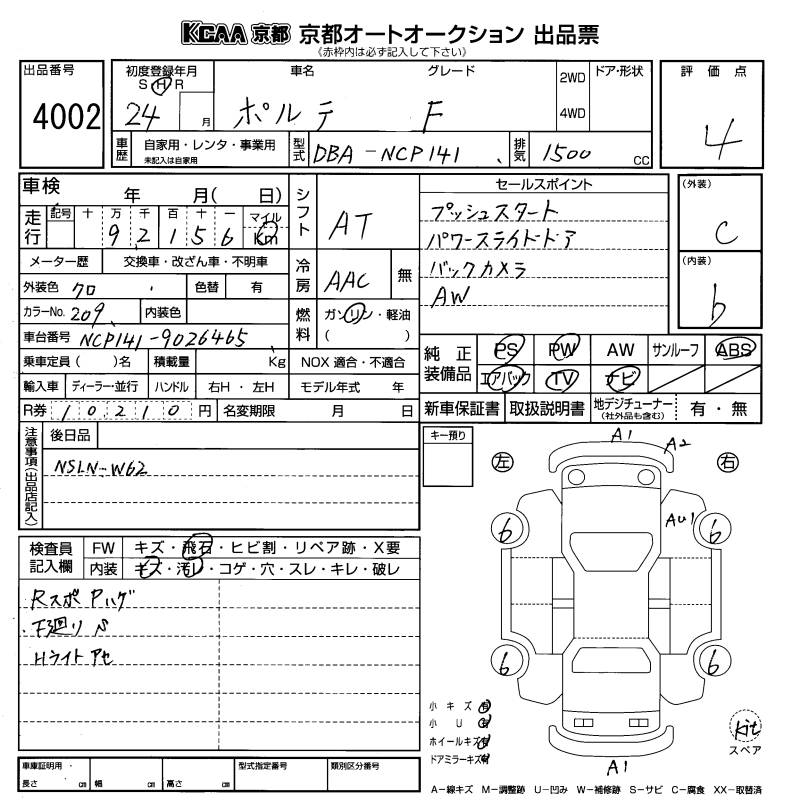 KCAA 京都 京都オートオークション 出品票
《赤枠内は必ず記入して下さい》
出品番号 初度登録年月 車名 グレード 2WD ドア・形状 評価点
S H R
4002 24 月 ポルテ F 4WD 4
車歴 自家用・レンタ・事業用 型式 DBA-NCP141 排気 1500 CC
未記入は自家用
車検 年 月( 日) シフト AT セールスポイント (外装)
走行 記号 十 万 千 百 十 一 マイル プッシュスタート C
9 2 1 5 6 Km パワースライドドア
メーター歴 交換車・改ざん車・不明車 冷房 AAC 無 バックカメラ (内装)
外装色 クロ 色替 有 AW b
カラーNo. 209 内装色 燃料 ガソリン・軽油
車台番号 NCP141-9026465 ( )
乗車定員 ( )名 積載量 Kg NOX 適合・不適合 純正装備品 PS PW AW サンルーフ ABS
輸入車 ディーラー・並行 ハンドル 右H・左H モデル年式 年 エアバック TV ナビ
R券 10,210 円 名変期限 月 日 新車保証書 取扱説明書 地デジチューナー (社外品も含む) 有・無
注意事項(出品店記入) 後日品 キー預り
NSLN-W62
左 右
A1 A2
AU1
6 6
6 6
検査員記入欄 FW キズ・飛石・ヒビ割・リペア跡・X要
内装 キズ・汚レ・コゲ・穴・スレ・キレ・破レ
Rスポ Pハゲ
下廻り S
Hライト アセ
小キズ 有
小U 有
ホイールキズ 有
ドアミラーキズ 有
A1
kit
スペア
車庫証明用・ 型式指定番号 類別区分番号
長さ cm 幅 cm 高さ cm
A−線キズ M−調整跡 U−凹み W−補修跡 S−サビ C−腐食 XX−取替済